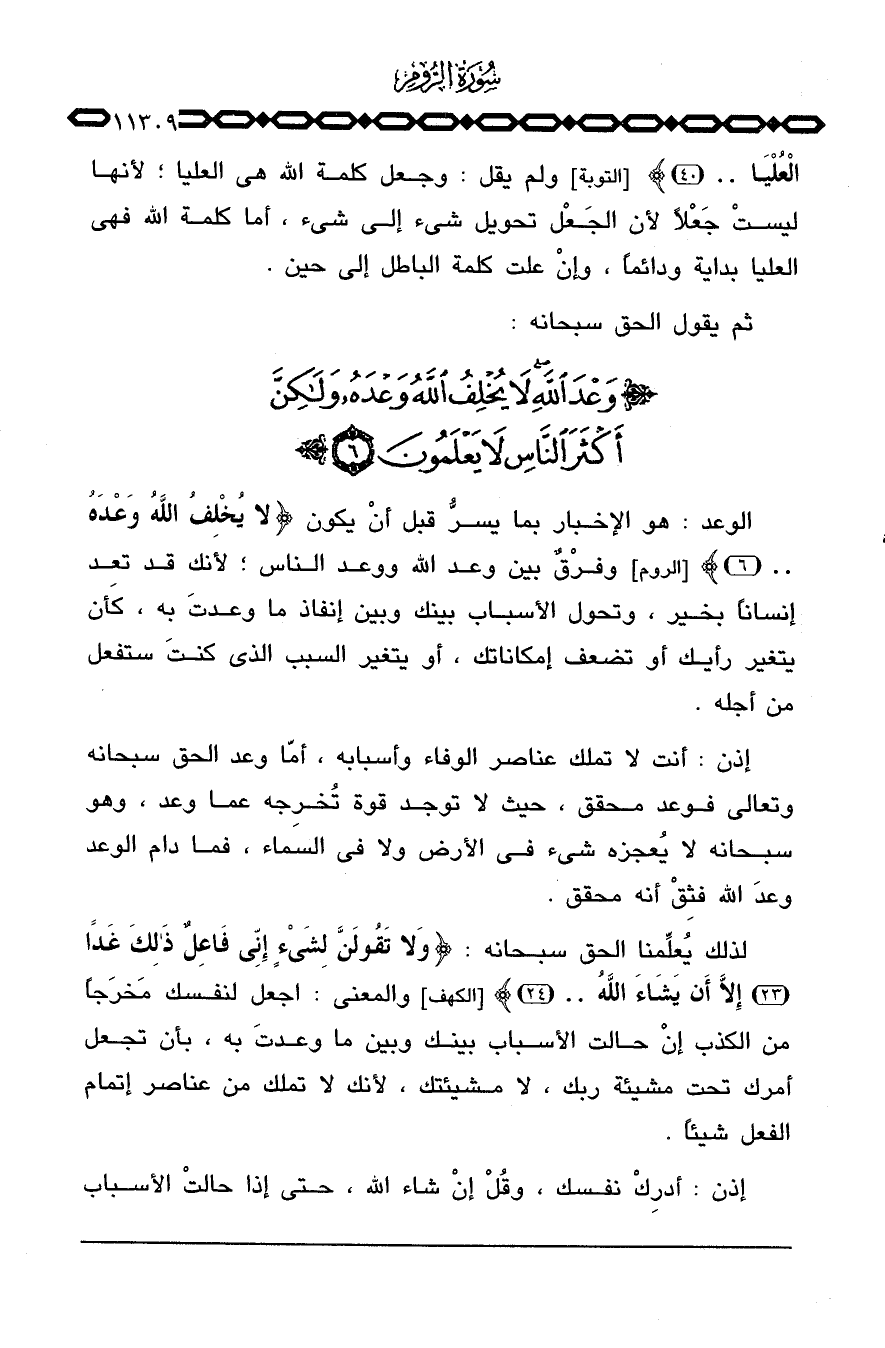 سُورَةُ الرُّومِ
١١٣٠٩
الْعُلْيَا .. (٤٠)﴾ [التوبة] ولم يقل : وجعل كلمة الله هى العليا ؛ لأنها
ليستْ جَعْلاً لأن الجَعْل تحويل شىء إلى شىء ، أما كلمة الله فهى
العليا بداية ودائماً ، وإنْ علت كلمة الباطل إلى حين .
ثم يقول الحق سبحانه :
﴿ وَعْدَ ٱللَّهِۖ لَا يُخْلِفُ ٱللَّهُ وَعْدَهُۥ وَلَٰكِنَّ
أَكْثَرَ ٱلنَّاسِ لَا يَعْلَمُونَ (٦) ﴾
الوعد : هو الإخبار بما يسرُّ قبل أنْ يكون ﴿ لا يُخْلِفُ اللَّهُ وَعْدَهُ
.. (٦)﴾ [الروم] وفرْقٌ بين وعد الله ووعد الناس ؛ لأنك قد تعد
إنساناً بخير ، وتحول الأسباب بينك وبين إنفاذ ما وعدتَ به ، كأن
يتغير رأيك أو تضعف إمكاناتك ، أو يتغير السبب الذى كنتَ ستفعل
من أجله .
إذن : أنت لا تملك عناصر الوفاء وأسبابه ، أمّا وعد الحق سبحانه
وتعالى فوعد محقق ، حيث لا توجد قوة تُخرِجه عما وعد ، وهو
سبحانه لا يُعجزه شىء فى الأرض ولا فى السماء ، فما دام الوعد
وعدَ الله فثِقْ أنه محقق .
لذلك يُعلِّمنا الحق سبحانه : ﴿ وَلا تَقُولَنَّ لِشَيْءٍ إِنِّي فَاعِلٌ ذَٰلِكَ غَدًا
(٢٣) إِلاَّ أَن يَشَاءَ اللَّهُ .. (٢٤)﴾ [الكهف] والمعنى : اجعل لنفسك مَخرَجاً
من الكذب إنْ حالت الأسباب بينك وبين ما وعدتَ به ، بأن تجعل
أمرك تحت مشيئة ربك ، لا مشيئتك ، لأنك لا تملك من عناصر إتمام
الفعل شيئاً .
إذن : أدرِكْ نفسك ، وقُلْ إنْ شاء الله ، حتى إذا حالتْ الأسباب